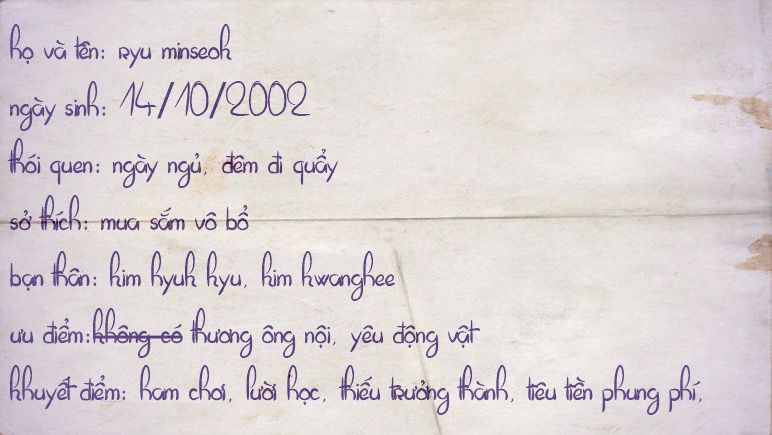 họ và tên: Ryu minseok
ngày sinh: 14/10/2002
thói quen: ngày ngủ, đêm đi quẩy
sở thích: mua sắm vô bổ
bạn thân: kim hyuk kyu, kim kwanghee
ưu điểm: không có thương ông nội, yêu động vật
khuyết điểm: ham chơi, lười học, thiếu trưởng thành, tiêu tiền phung phí,